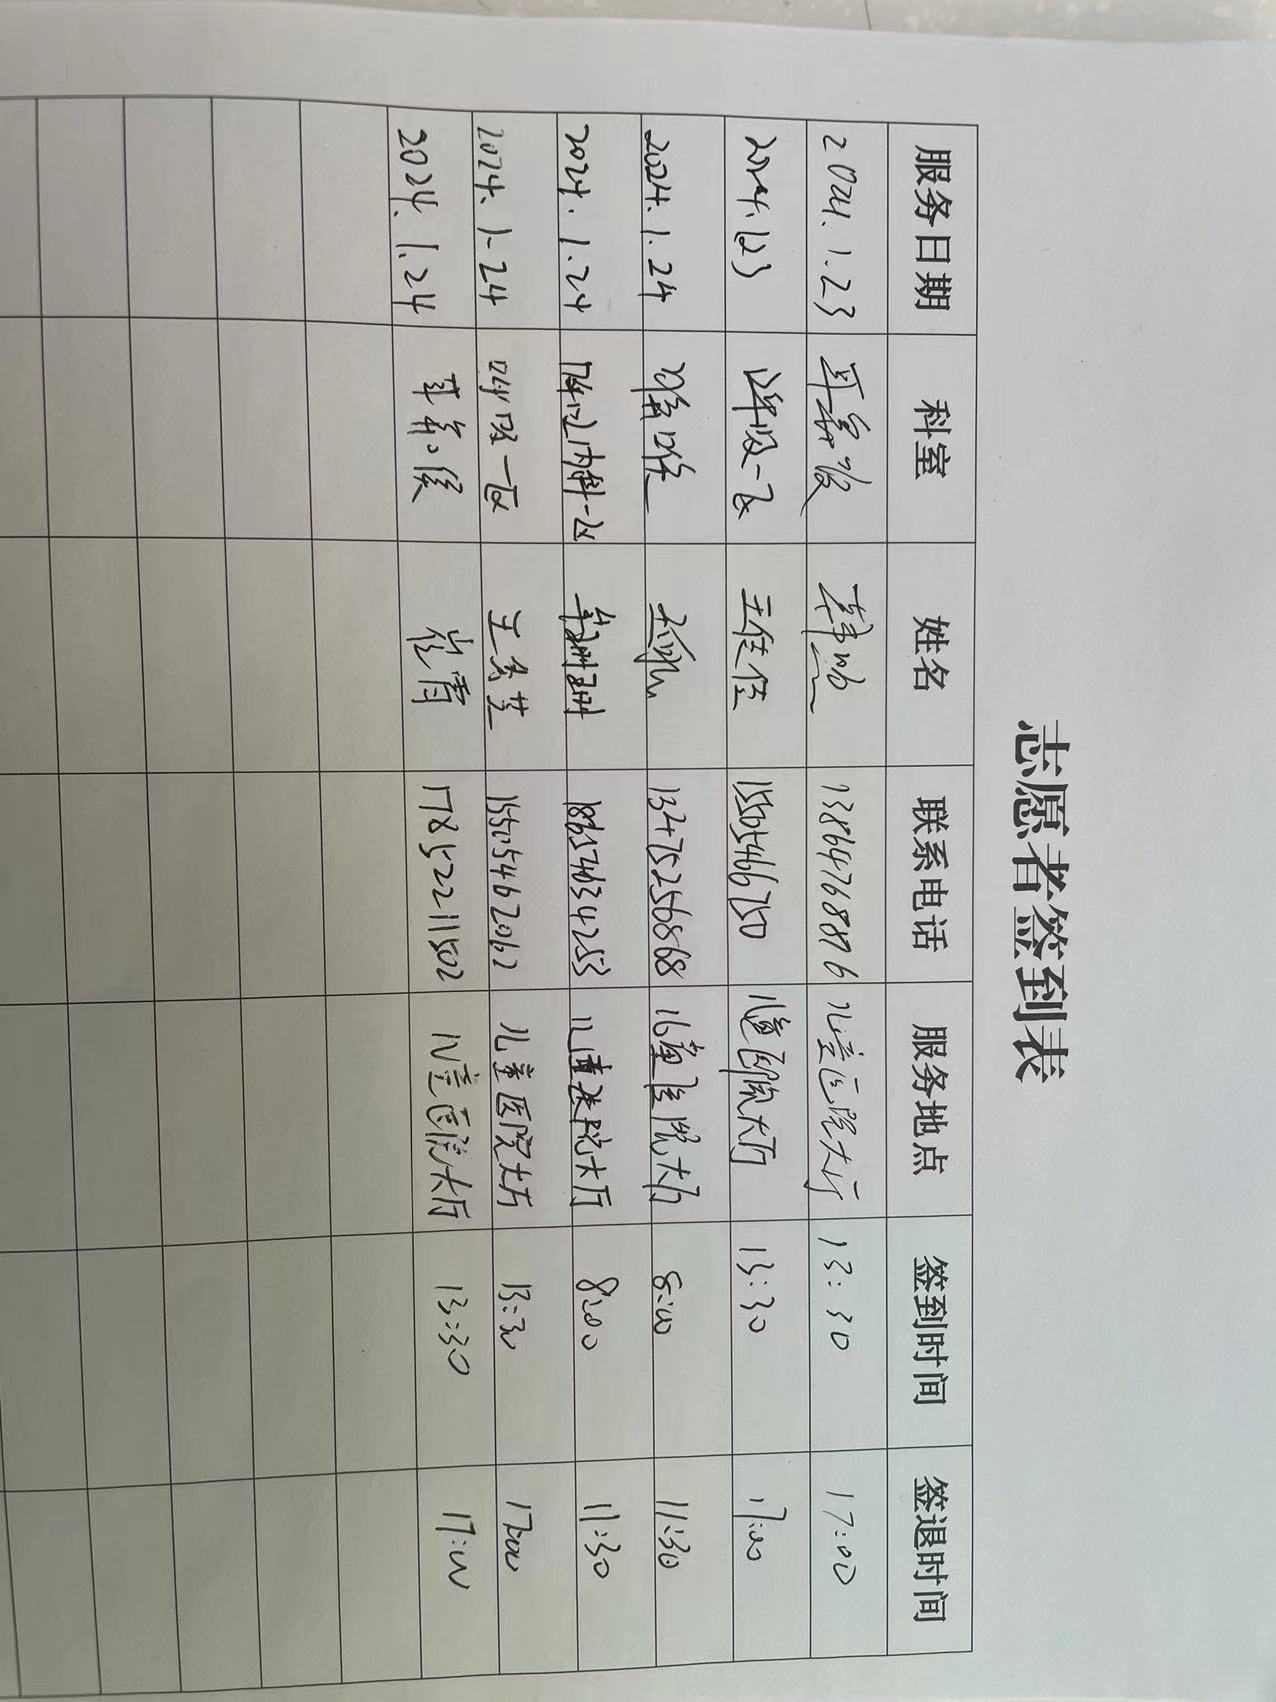 志愿者签到表
服务日期 科室 姓名 联系电话 服务地点 签到时间 签退时间
2024.1.23 耳鼻喉 13864768876 儿童医院大厅 13:30 17:00
2024.1.23 呼吸一区 王佳佳 15505466750 儿童医院大厅 13:30 17:00
2024.1.24 13475256868 儿童医院大厅 8:00 11:30
2024.1.24 心内科一区 18654634253 儿童医院大厅 8:00 11:30
2024.1.24 呼吸一区 王 芝 15505462062 儿童医院大厅 13:30 17:00
2024.1.24 耳鼻喉 崔霄 17852211502 儿童医院大厅 13:30 17:00